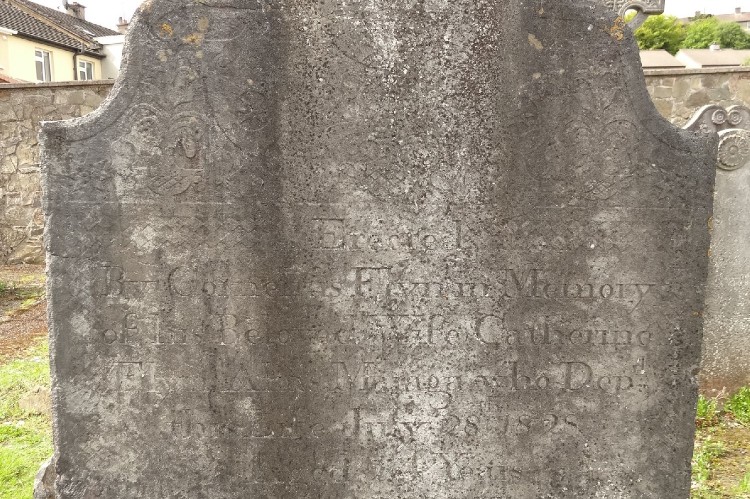 Erected
By Cornelius Flyn in Memory
of his Beloved Wife Catherine
Flyn Alias who Dep.d
this Life July 28th 1828
Years